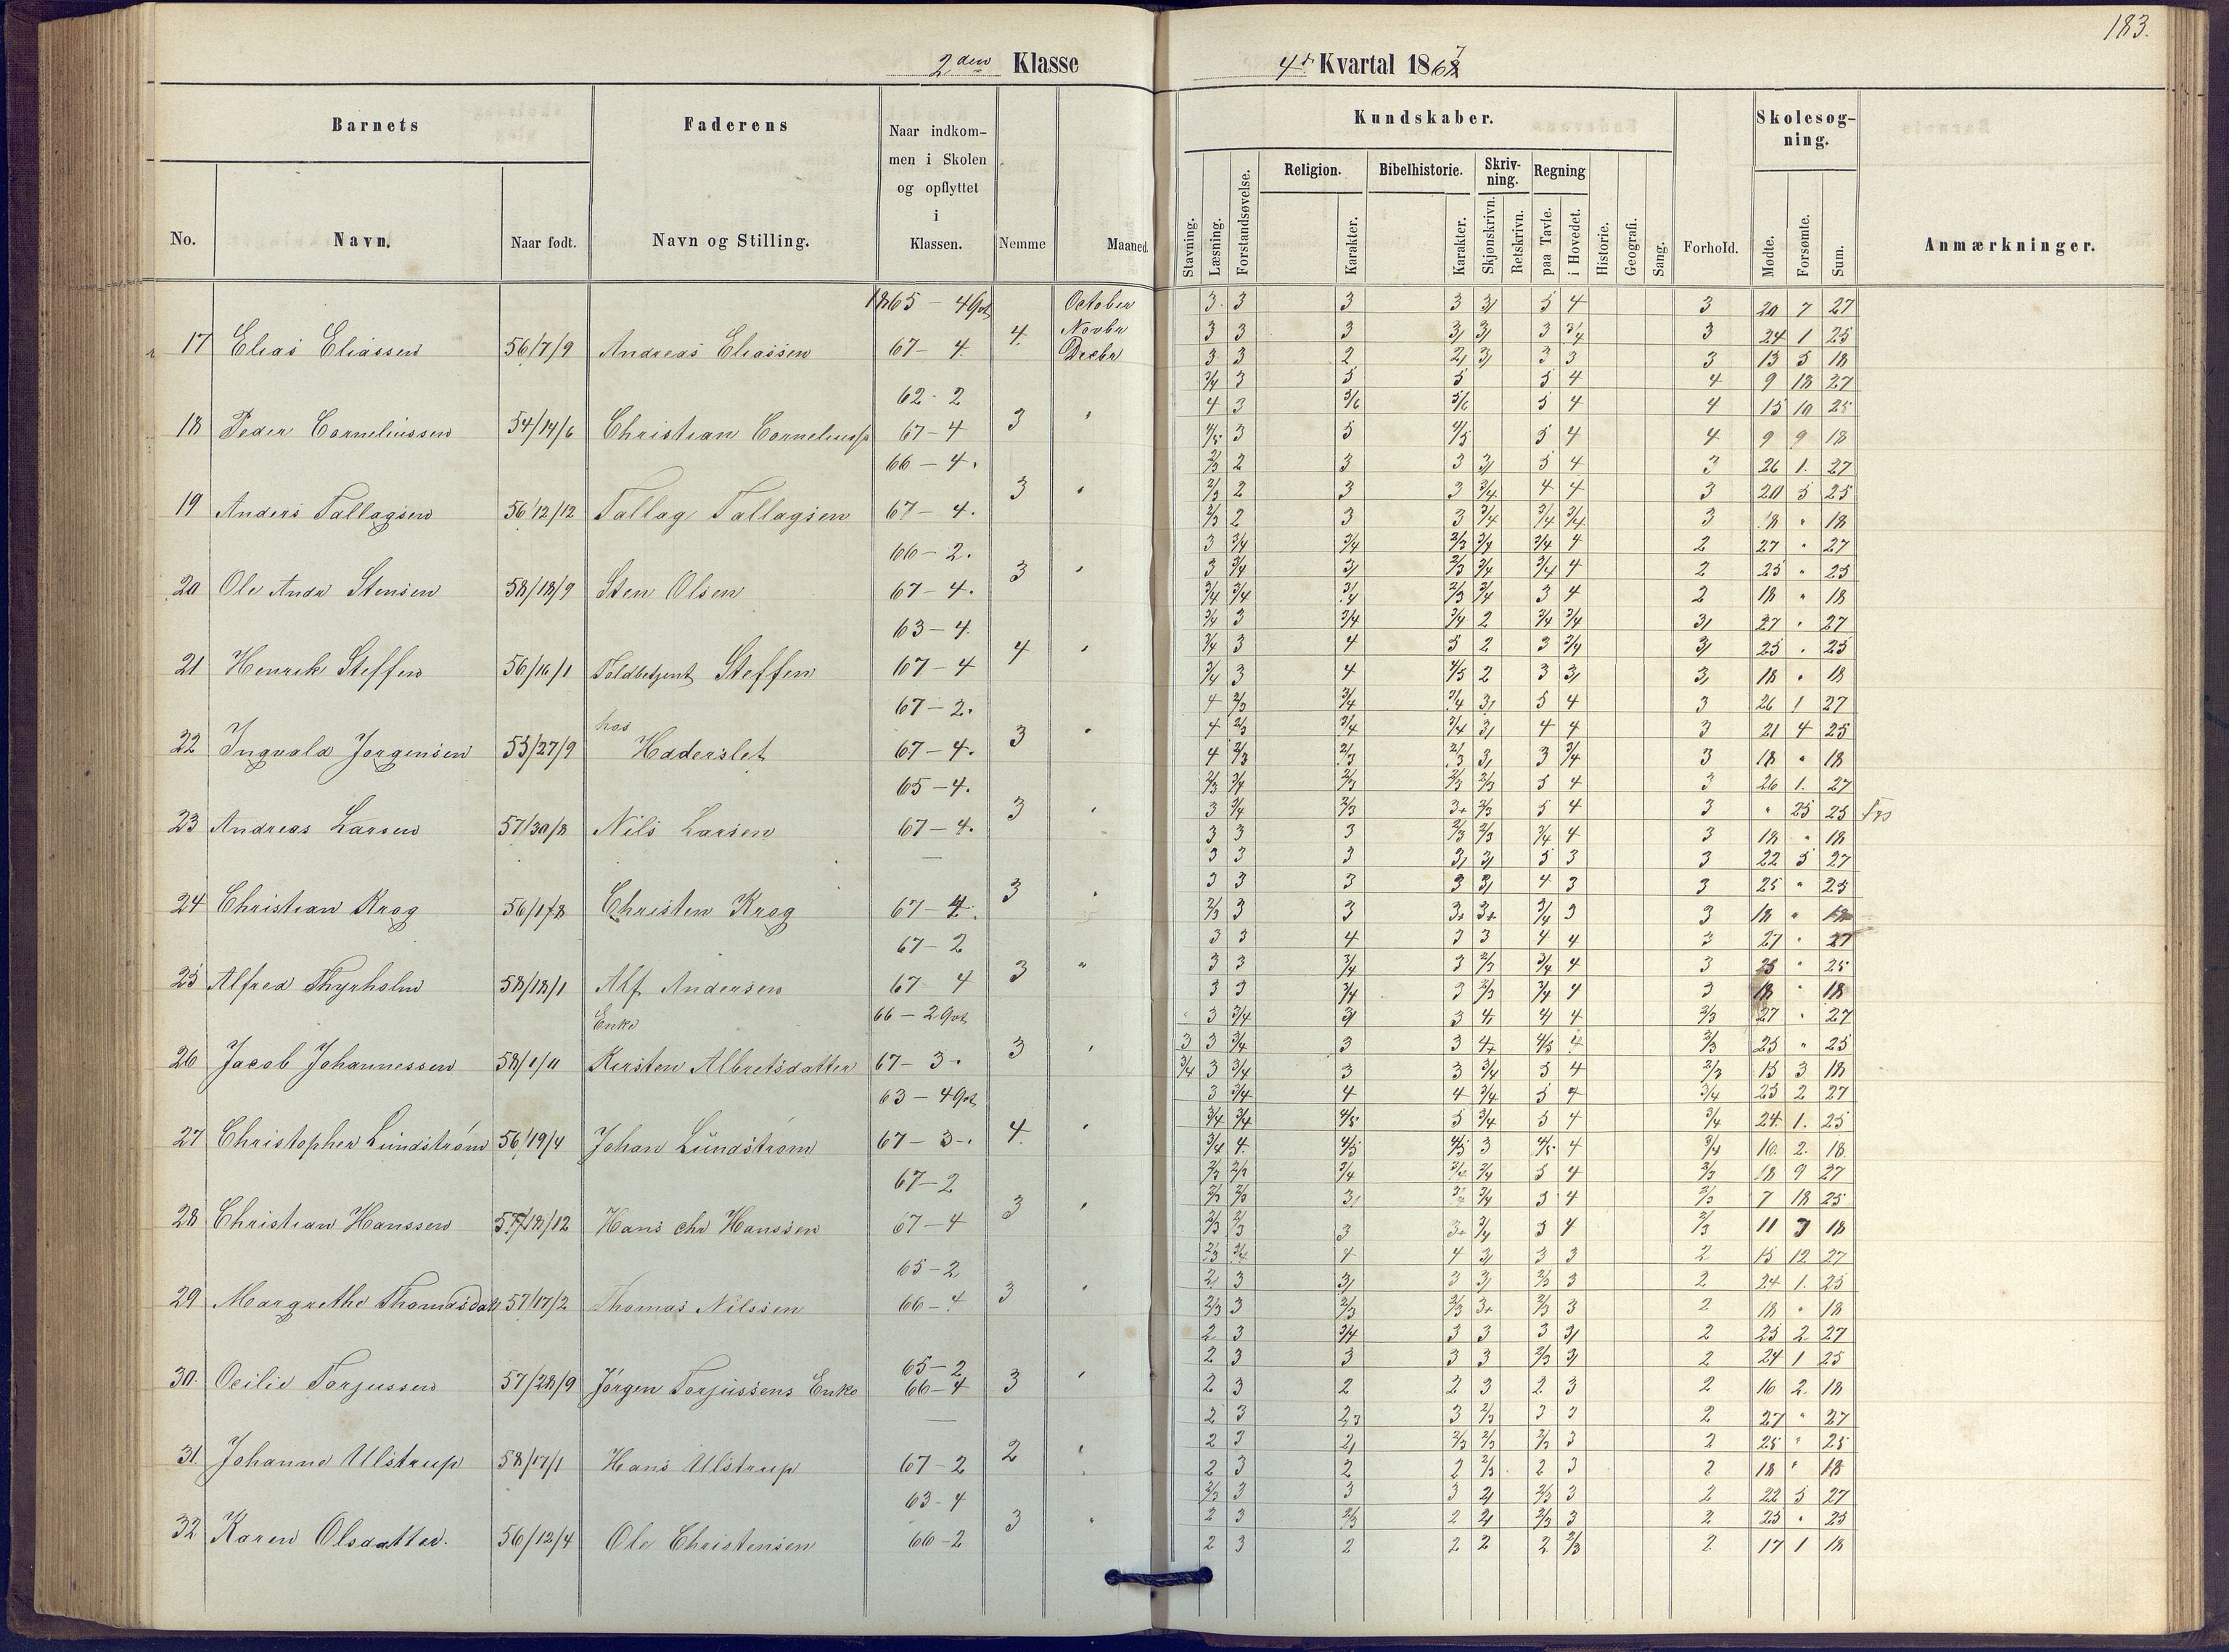 183.
2den Klasse
4de Kvartal 1867
Barnets
Faderens
Naar indkom-
men i Skolen
og opflyttet
i
Klassen.
No.
Navn.
Naar født.
Navn og Stilling.
Nemme
Maaned.
Kundskaber.
Stavning.
Læsning.
Forstandsøvelse.
Religion.
Karakter.
Bibelhistorie.
Karakter.
Skriv-
ning.
Skjønskrivn.
Retskrivn.
Regning
paa Tavle.
i Hovedet.
Historie.
Geografi.
Sang.
Forhold.
Skolesog-
ning.
Mødte.
Forsømte.
Sum.
Anmærkninger.
1865 – 4 Qvt
17 Elias Eliassen 56/7/9 Andreas Eliassen 67 – 4. 4.
October 3 3 3 3 5 4 3 20 7 27
Novbr 3 3 3 3 3 24 1 25
Decbr 3 3 2 3 3 3 13 5 18
62 - 2
18 Peder Corneliussen 54/14/6 Christian 67 – 4 3
3/4 3 5 5 5 4 4 9 18 27
4 3 5/6 5/6 5 4 4 15 10 25
4/5 3 5 4/5 5 4 4 9 9 18
66 – 4.
19 Anders Tallagsen 56/12/12 Tallag Tallagsen 67 – 4. 3
2/3 2 3 3 5 4 3 26 1. 27
2/3 2 3 3 3/4 4 4 3 20 5 25
2/3 2 3 3 3/4 3/4 3/4 3 18 " 18
66 – 2.
20 Ole Andr Stensen 58/18/9 Sten Olsen 67 – 4. 3
3 3/4 3/4 2/3 3/4 3/4 4 2 27 " 27
3 3/4 2/3 3/4 3/4 4 2 25 " 25
3/4 3/4 3/4 2/3 3/4 3 4 2 18 " 18
63 – 4.
21 Henrik Steffen 56/16/1 Toldbetjent Steffen 67 – 4 4
3/4 3 3/4 3/4 2 3/4 3/4 27 " 27
3/4 3 4 5 2 3 3/4 25 " 25
3/4 3 4 4/5 2 3 18 " 18
67 – 2.
22 Ingvald Jorgensen 55/27/9 hos
Haderslet 67 – 4. 3
4 2/3 3/4 3/4 5 4 3 26 1 27
4 2/3 3/4 3/4 4 4 3 21 4 25
4 2/3 2/3 2/3 3 3/4 3 18 " 18
65 – 4.
23 Andreas Larsen 57/30/8 Nils Larsen 67 – 4. 3
2/3 3/4 2/3 2/3 2/3 5 4 3 26 1. 27
3 3/4 2/3 3+ 2/3 5 4 3 " 25 25
3 3 3 2/3 2/3 3/4 4 3 18 " 18
—
24 Christian Krog 56/17/8 Christen Krog 67 – 4. 3
3 3 3 5 3 3 22 5 27
3 3 3 3 4 3 3 25 " 25
2/3 3 3 3+ 3+ 3/4 3 3 18 " 18
67 – 2
25 Alfred Thyrholm 58/18/1 Alf Andersen 67 – 4 3
3 3 4 3 3 4 4 3 27 " 27
3 3 3/4 3 2/3 3/4 4 3 25 " 25
3 3 3/4 3 2/3 3/4 4 3 18 " 18
66 – 2 Qvt
26 Jacob Johannessen 58/1/11 Enke
Kirsten Albretsdatter 67 – 3. 3
3 3/4 3 4 2/3 27 " 27
3 3 3/4 3 3 4+ 4/5 4 2/3 25 " 25
3/4 3 3/4 3 3 3/4 5 4 2/3 15 3 18
63 – 4 Qvt
27 Christopher Lundstrøm 56/19/4 Johan Lundstrøm 67 – 3 . 4.
3 3/4 4 4 3/4 5 4 3/4 25 2 27
3/4 3/4 4/5 5 3/4 5 4 3/4 24. 1. 25
3/4 4. 4/5 4/5 3 4/5 4 3/4 16. 2. 18.
67 – 2
28 Christian Hanssen 57/18/12 Hans chr Hanssen 67 – 4 3
2/3 2/3 3/4 3/4 3/4 5 4 2/3 18 9 27
2/3 2/3 3/4 5 4 2/3 7 18 25
2/3 2/3 3 3+ 3/4 5 4 2/3 11 7 18
65 – 2
29 Margrethe Thomasdatt 57/17/2 Thomas Nilssen 66 – 4 3
2/3 3/4 4 4 3 3 2 15 12 27
3 3 2/3 3 2 24 1. 25
2/3 3 2/3 2/3 3+ 2/3 3 2 18 " 18
65 – 2
30. Ocilie Torjussen 57/28/9 Jørgen Torjussens Enke 66 – 4 3
2 3 3/4 3 3 3 2 25 2 27
2 3 3 3 3 2/3 2 24 1 25
2 3 2 2 3 2 3 2 16 2 18
—
31. Johanne Ulstrup 58/17/1 Hans Ulstrup 67 – 2 2
2 3 3 2/3 3 3 2 27 " 27
2 3 2/3 2/3 2/3 3 2 25 " 25
2 3 2 2 2/3 2 3 2 18 " 18
63 - 4
32 Karen Olsdatter. 56/12/4 Ole Christensen 66 – 2 3
2/3 3 3 3 2/3 3 2 22 5 27
2 3 2/3 2 2/3 3 2 25 " 25
2 3 2 2 2 2 2/3 2 17 1 18